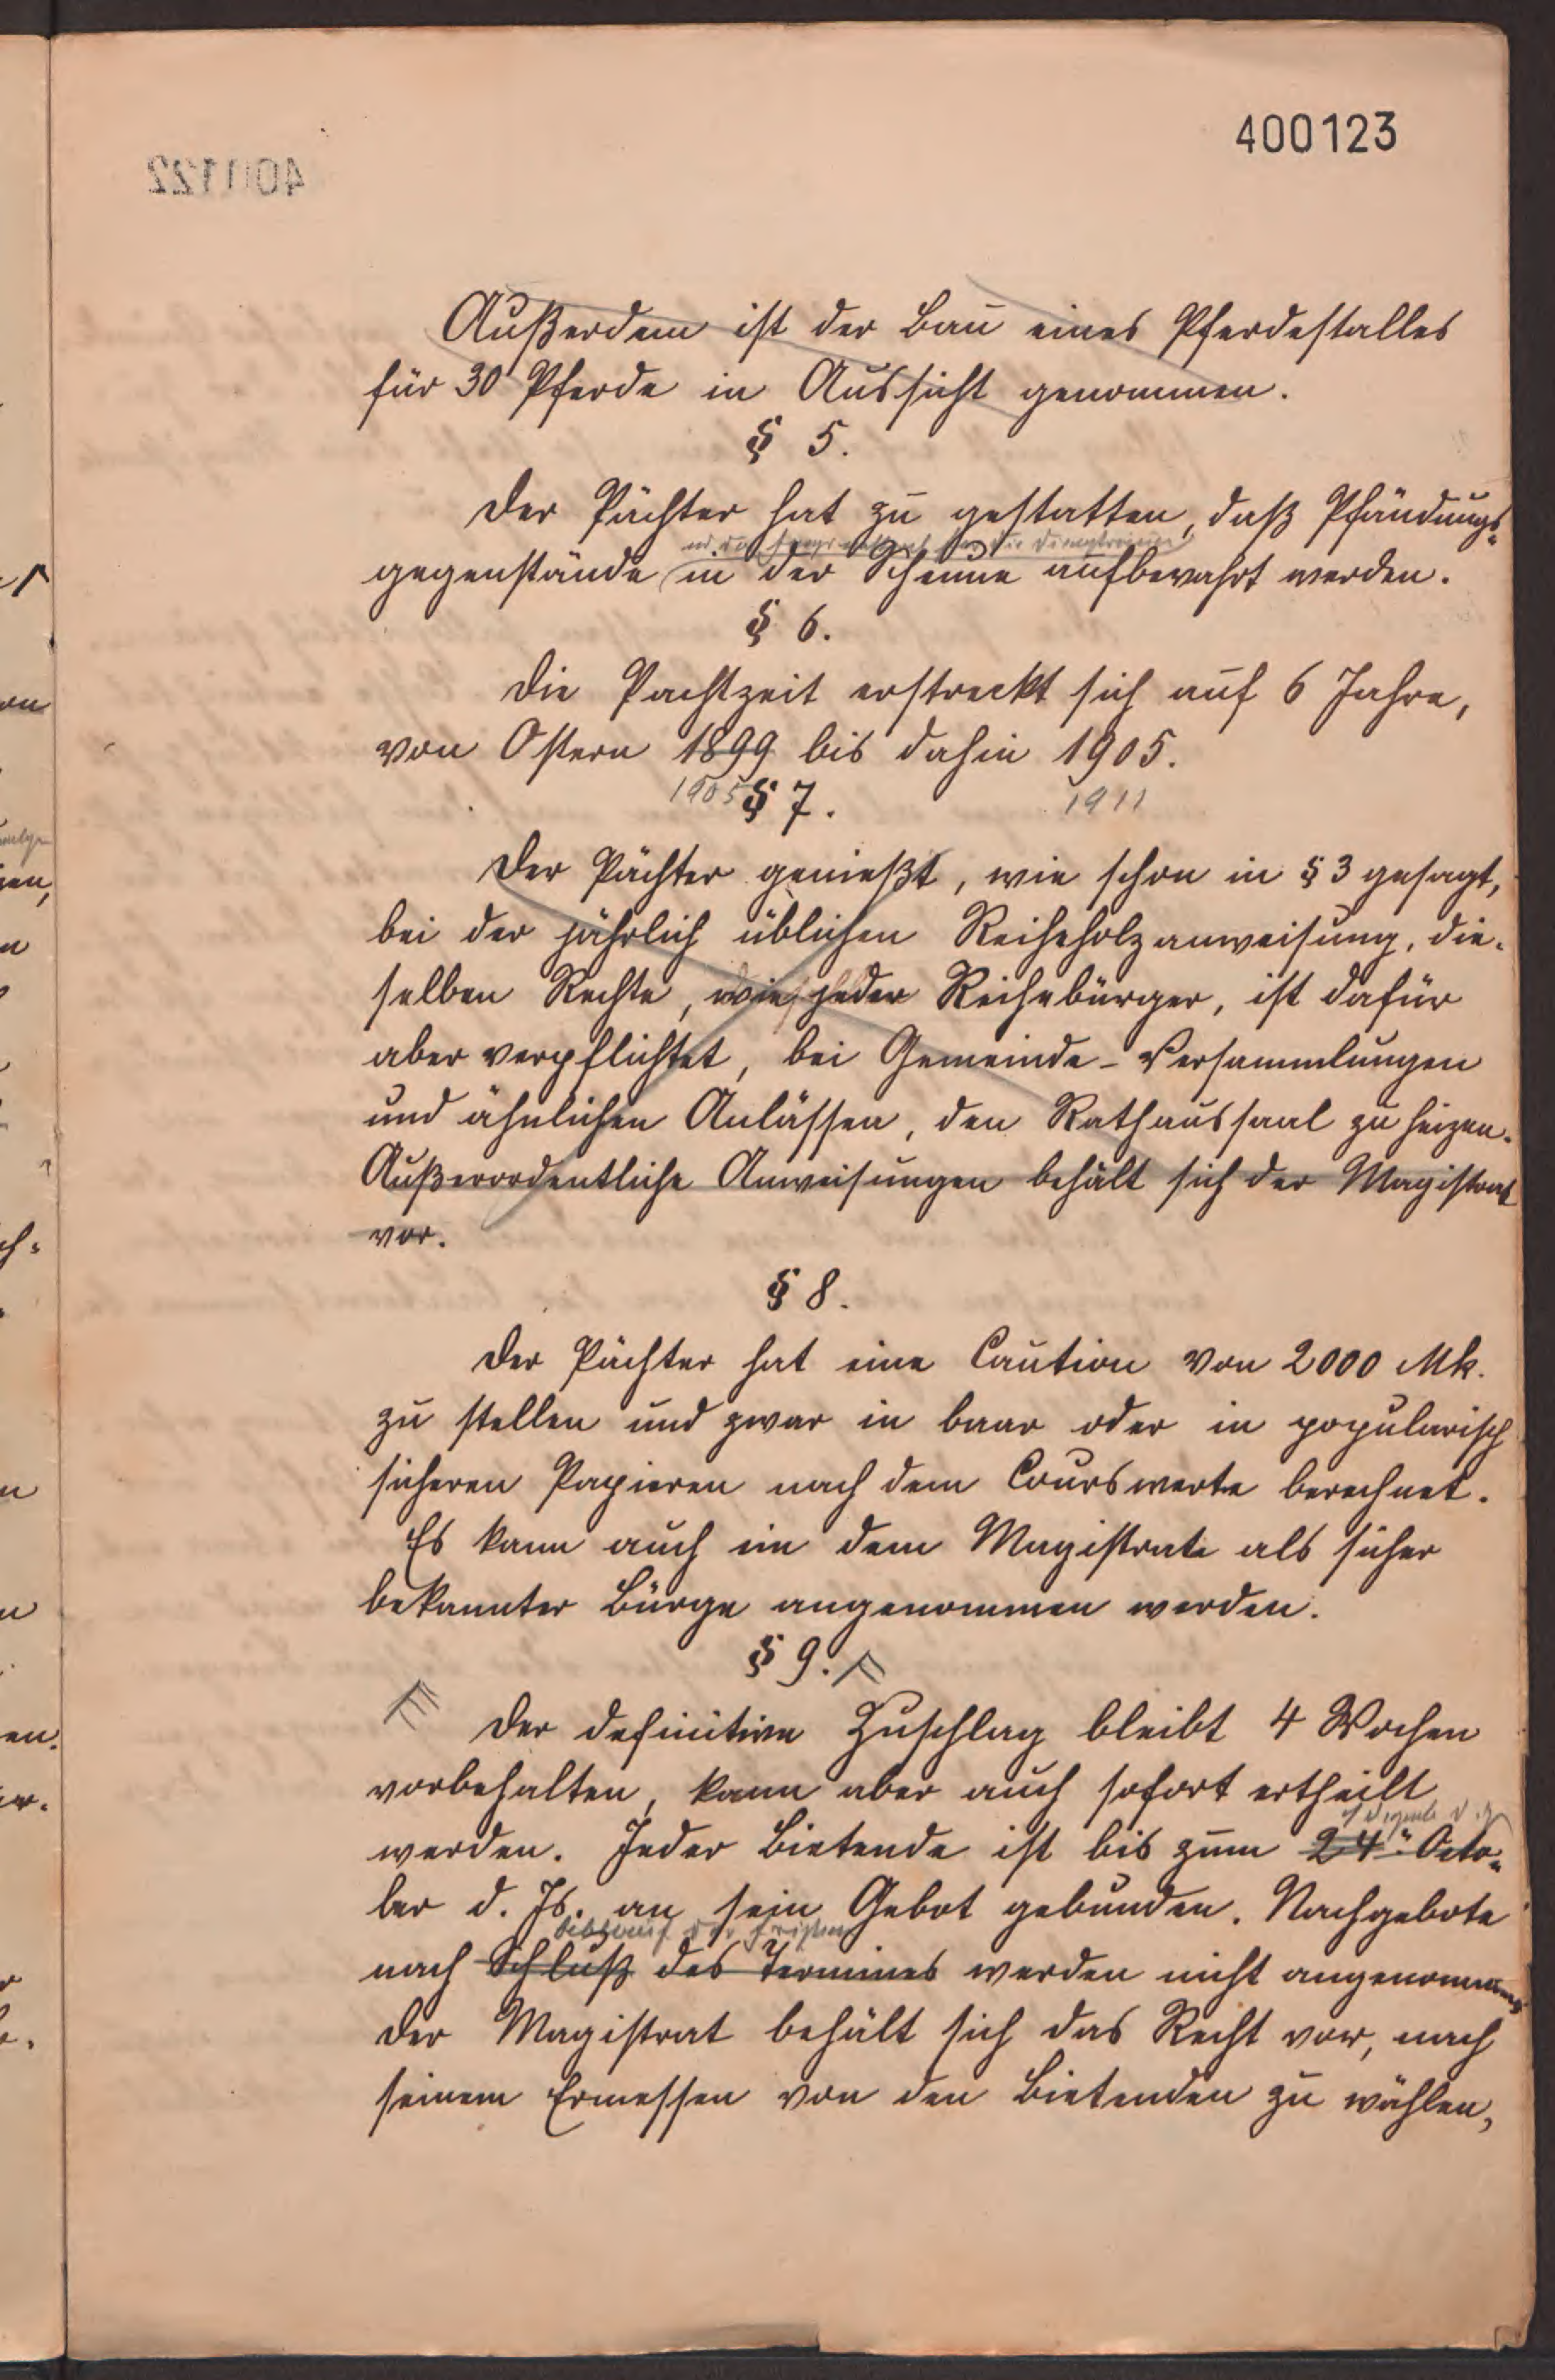 400123
Außerdem ist der Bau eines Pferdestalles
für 30 Pferde in Aussicht genommen.
§ 5.
Der Pächter hat zu gestatten, daß Pfändungs-
gegenstände in der Scheune aufbewahrt werden.
§ 6.
Die Pachtzeit erstreckt sich auf 6 Jahre,
von Ostern 1899 bis dahin 1905.
1905 1911
§ 7.
Der Pächter genießt, wie schon in § 3 gesagt,
bei der jährlich üblichen Reiheholzanweisung, die-
selben Rechte, wie jeder Reihebürger, ist dafür
aber verpflichtet, bei Gemeinde-Versammlungen
und ähnlichen Anlässen, den Rathaussaal zu heizen.
Außerordentliche Anweisungen behält sich der Magistrat
vor.
§ 8.
Der Pächter hat eine Caution von 2000 Mk.
zu stellen und zwar in baar oder in popularisch
sicheren Papieren nach dem Courswerte berechnet.
Es kann auch ein dem Magistrate als sicher
bekannter Bürge angenommen werden.
§ 9.
Der definitive Zuschlag bleibt 4 Wochen
vorbehalten, kann aber auch sofort ertheilt
werden. Jeder Bietende ist bis zum 24. Octo-
ber d. Js. an sein Gebot gebunden. Nachgebote
nach Schluß des Termines werden nicht angenommen
Der Magistrat behält sich das Recht vor, nach
seinem Ermessen von den Bietenden zu wählen,